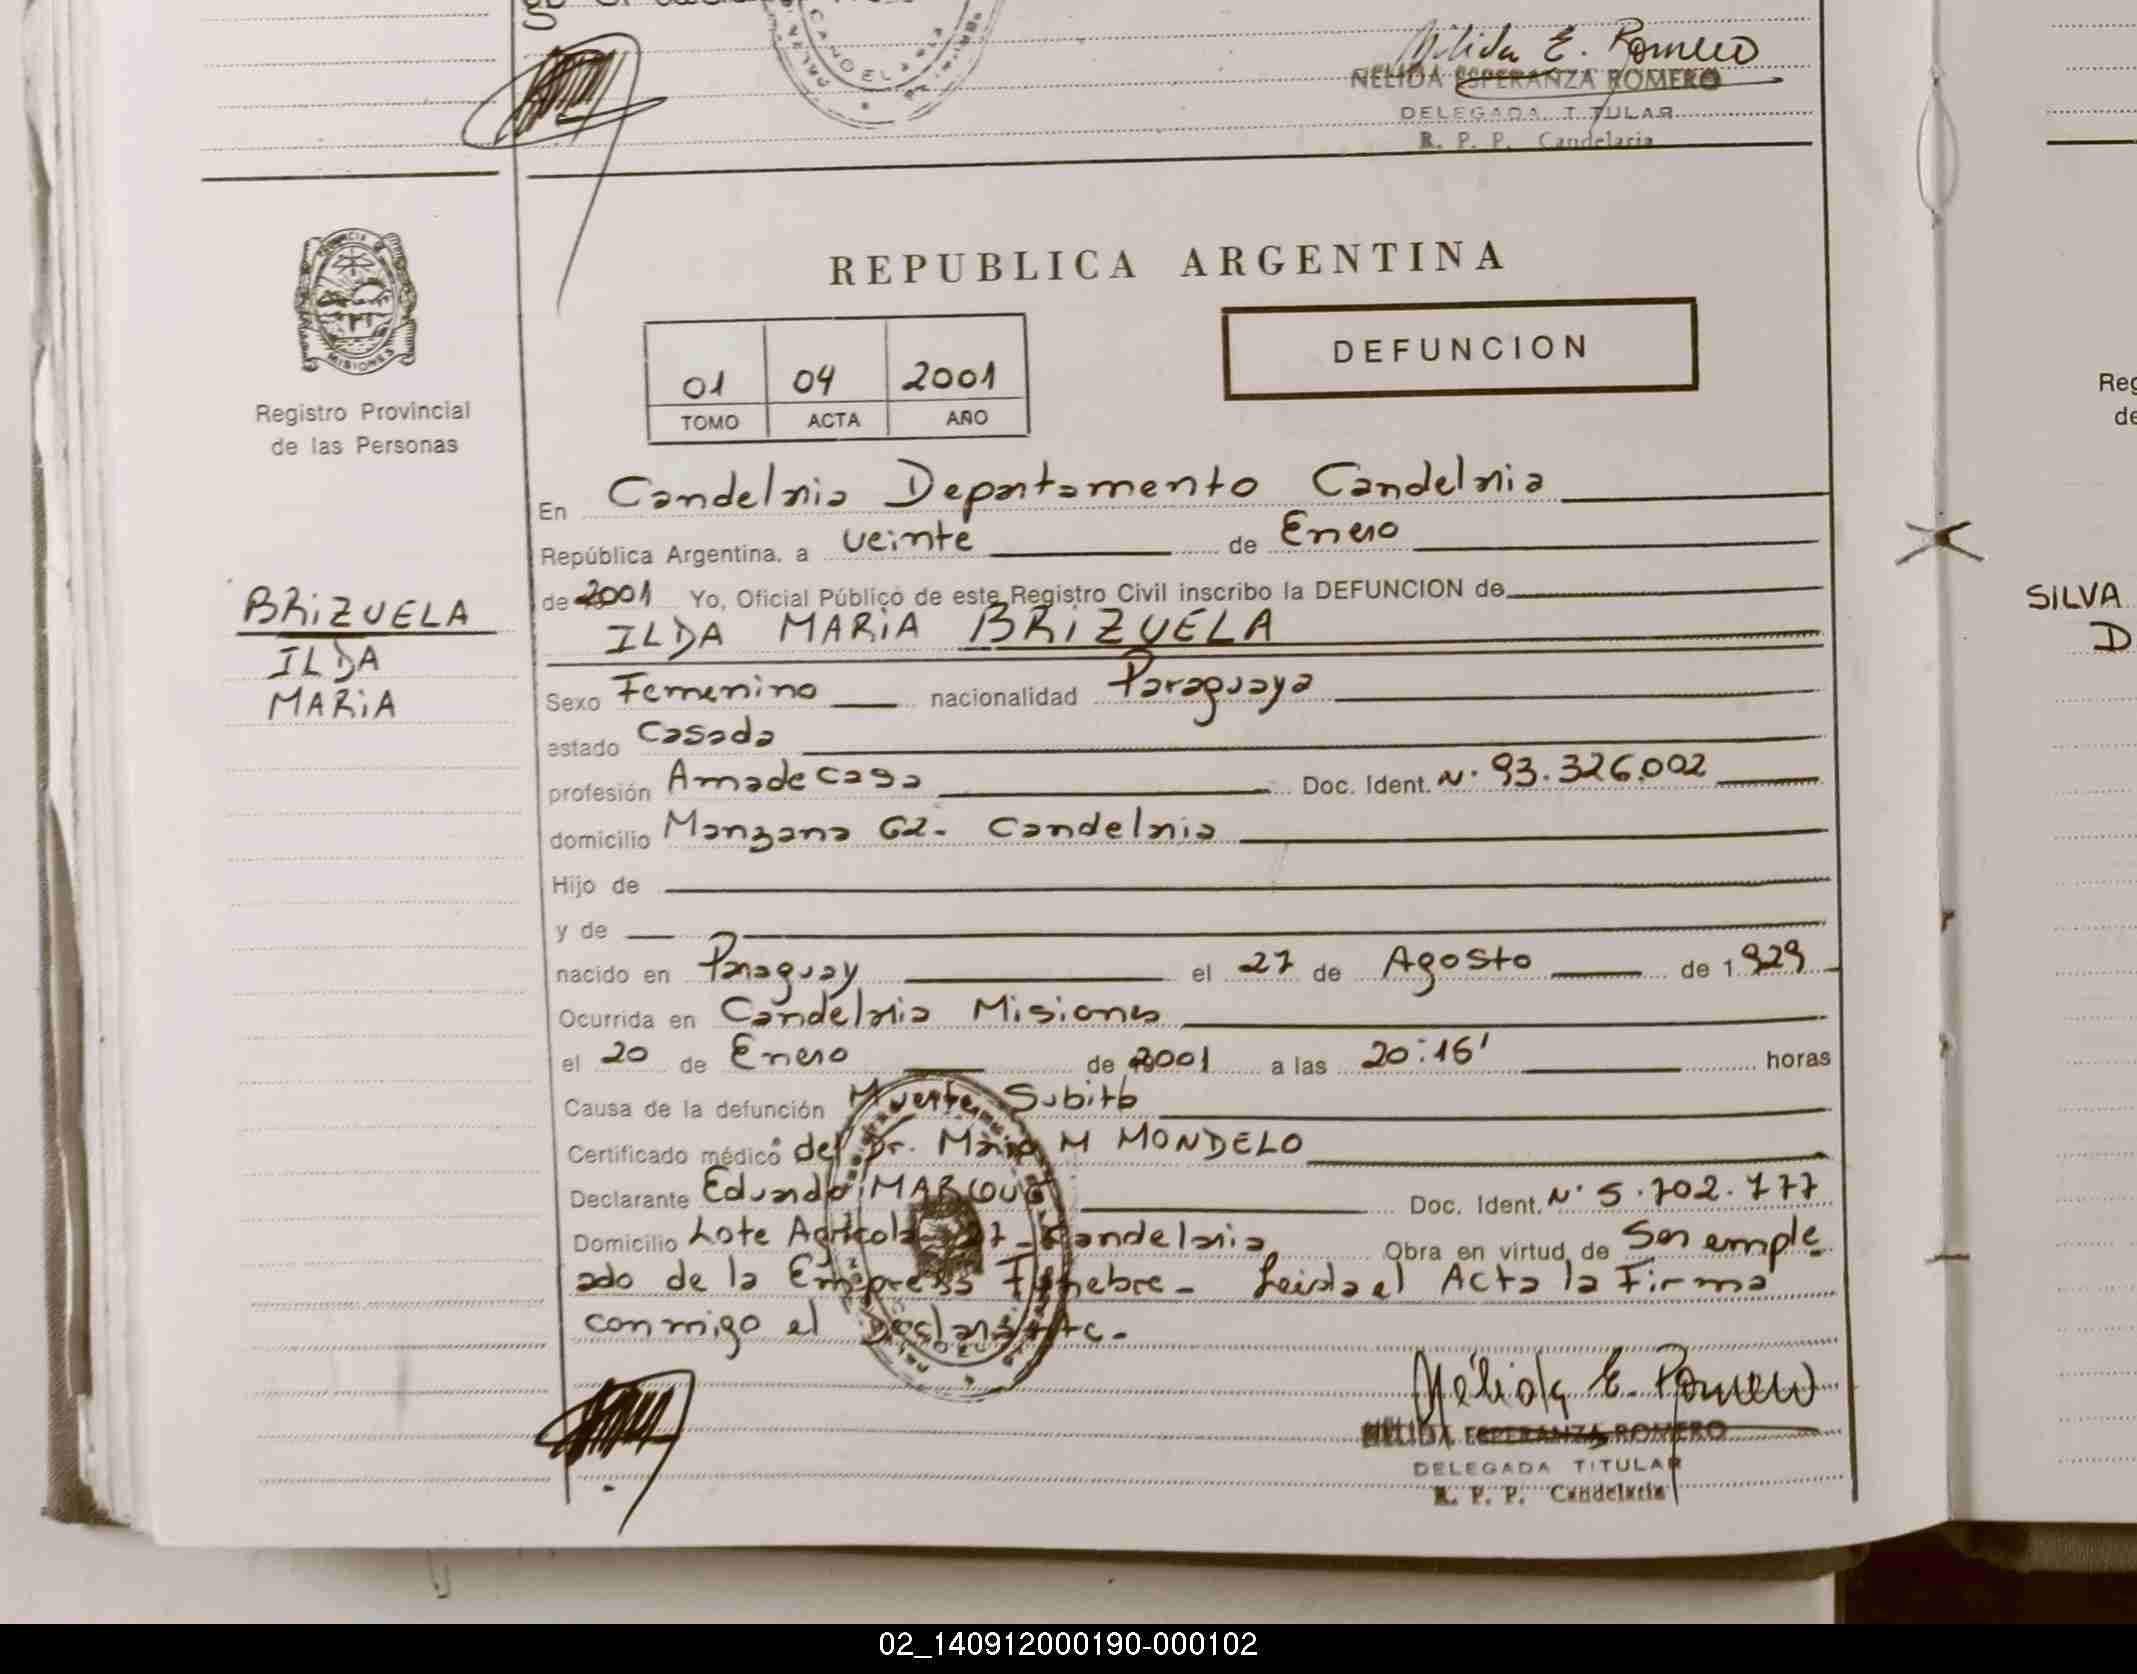 Nélida E. Romero
NELIDA ESPERANZA ROMERO
DELEGADA TITULAR
R. P. P. Candelaria
PROVINCIA DE
MISIONES
Registro Provincial
de las Personas
BRiZUELA
ILDA
MARiA
REPUBLICA ARGENTINA
DEFUNCION
01 04 2001
TOMO ACTA AÑO
En Candelaria Departamento Candelaria
República Argentina, a veinte de Enero
de 2001 Yo, Oficial Público de este Registro Civil inscribo la DEFUNCION de
ILDA MARiA BRiZUELA
Sexo Femenino nacionalidad Paraguaya
estado Casada
profesión Ama de casa Doc. Ident. N. 93.326.002
domicilio Manzana 62- Candelaria
Hijo de
y de
nacido en Paraguay el 27 de Agosto de 1.929
Ocurrida en Candelaria Misiones
el 20 de Enero de 2001 a las 20:16' horas
Causa de la defunción Muerte Subita
Certificado médico del Dr. Mario M MONDELO
Declarante Eduardo Doc. Ident. N° 5.702.777
Domicilio Lote Agricola 27-Candelaria Obra en virtud de Ser emple
ado de la Empresa Funebre- Leida el Acta la Firma
conmigo el Declarante.-
Nélida E. Romero
NELIDA ESPERANZA ROMERO
DELEGADA TITULAR
R. P. P. Candelaria
Reg
de
SILVA
D
02_140912000190-000102